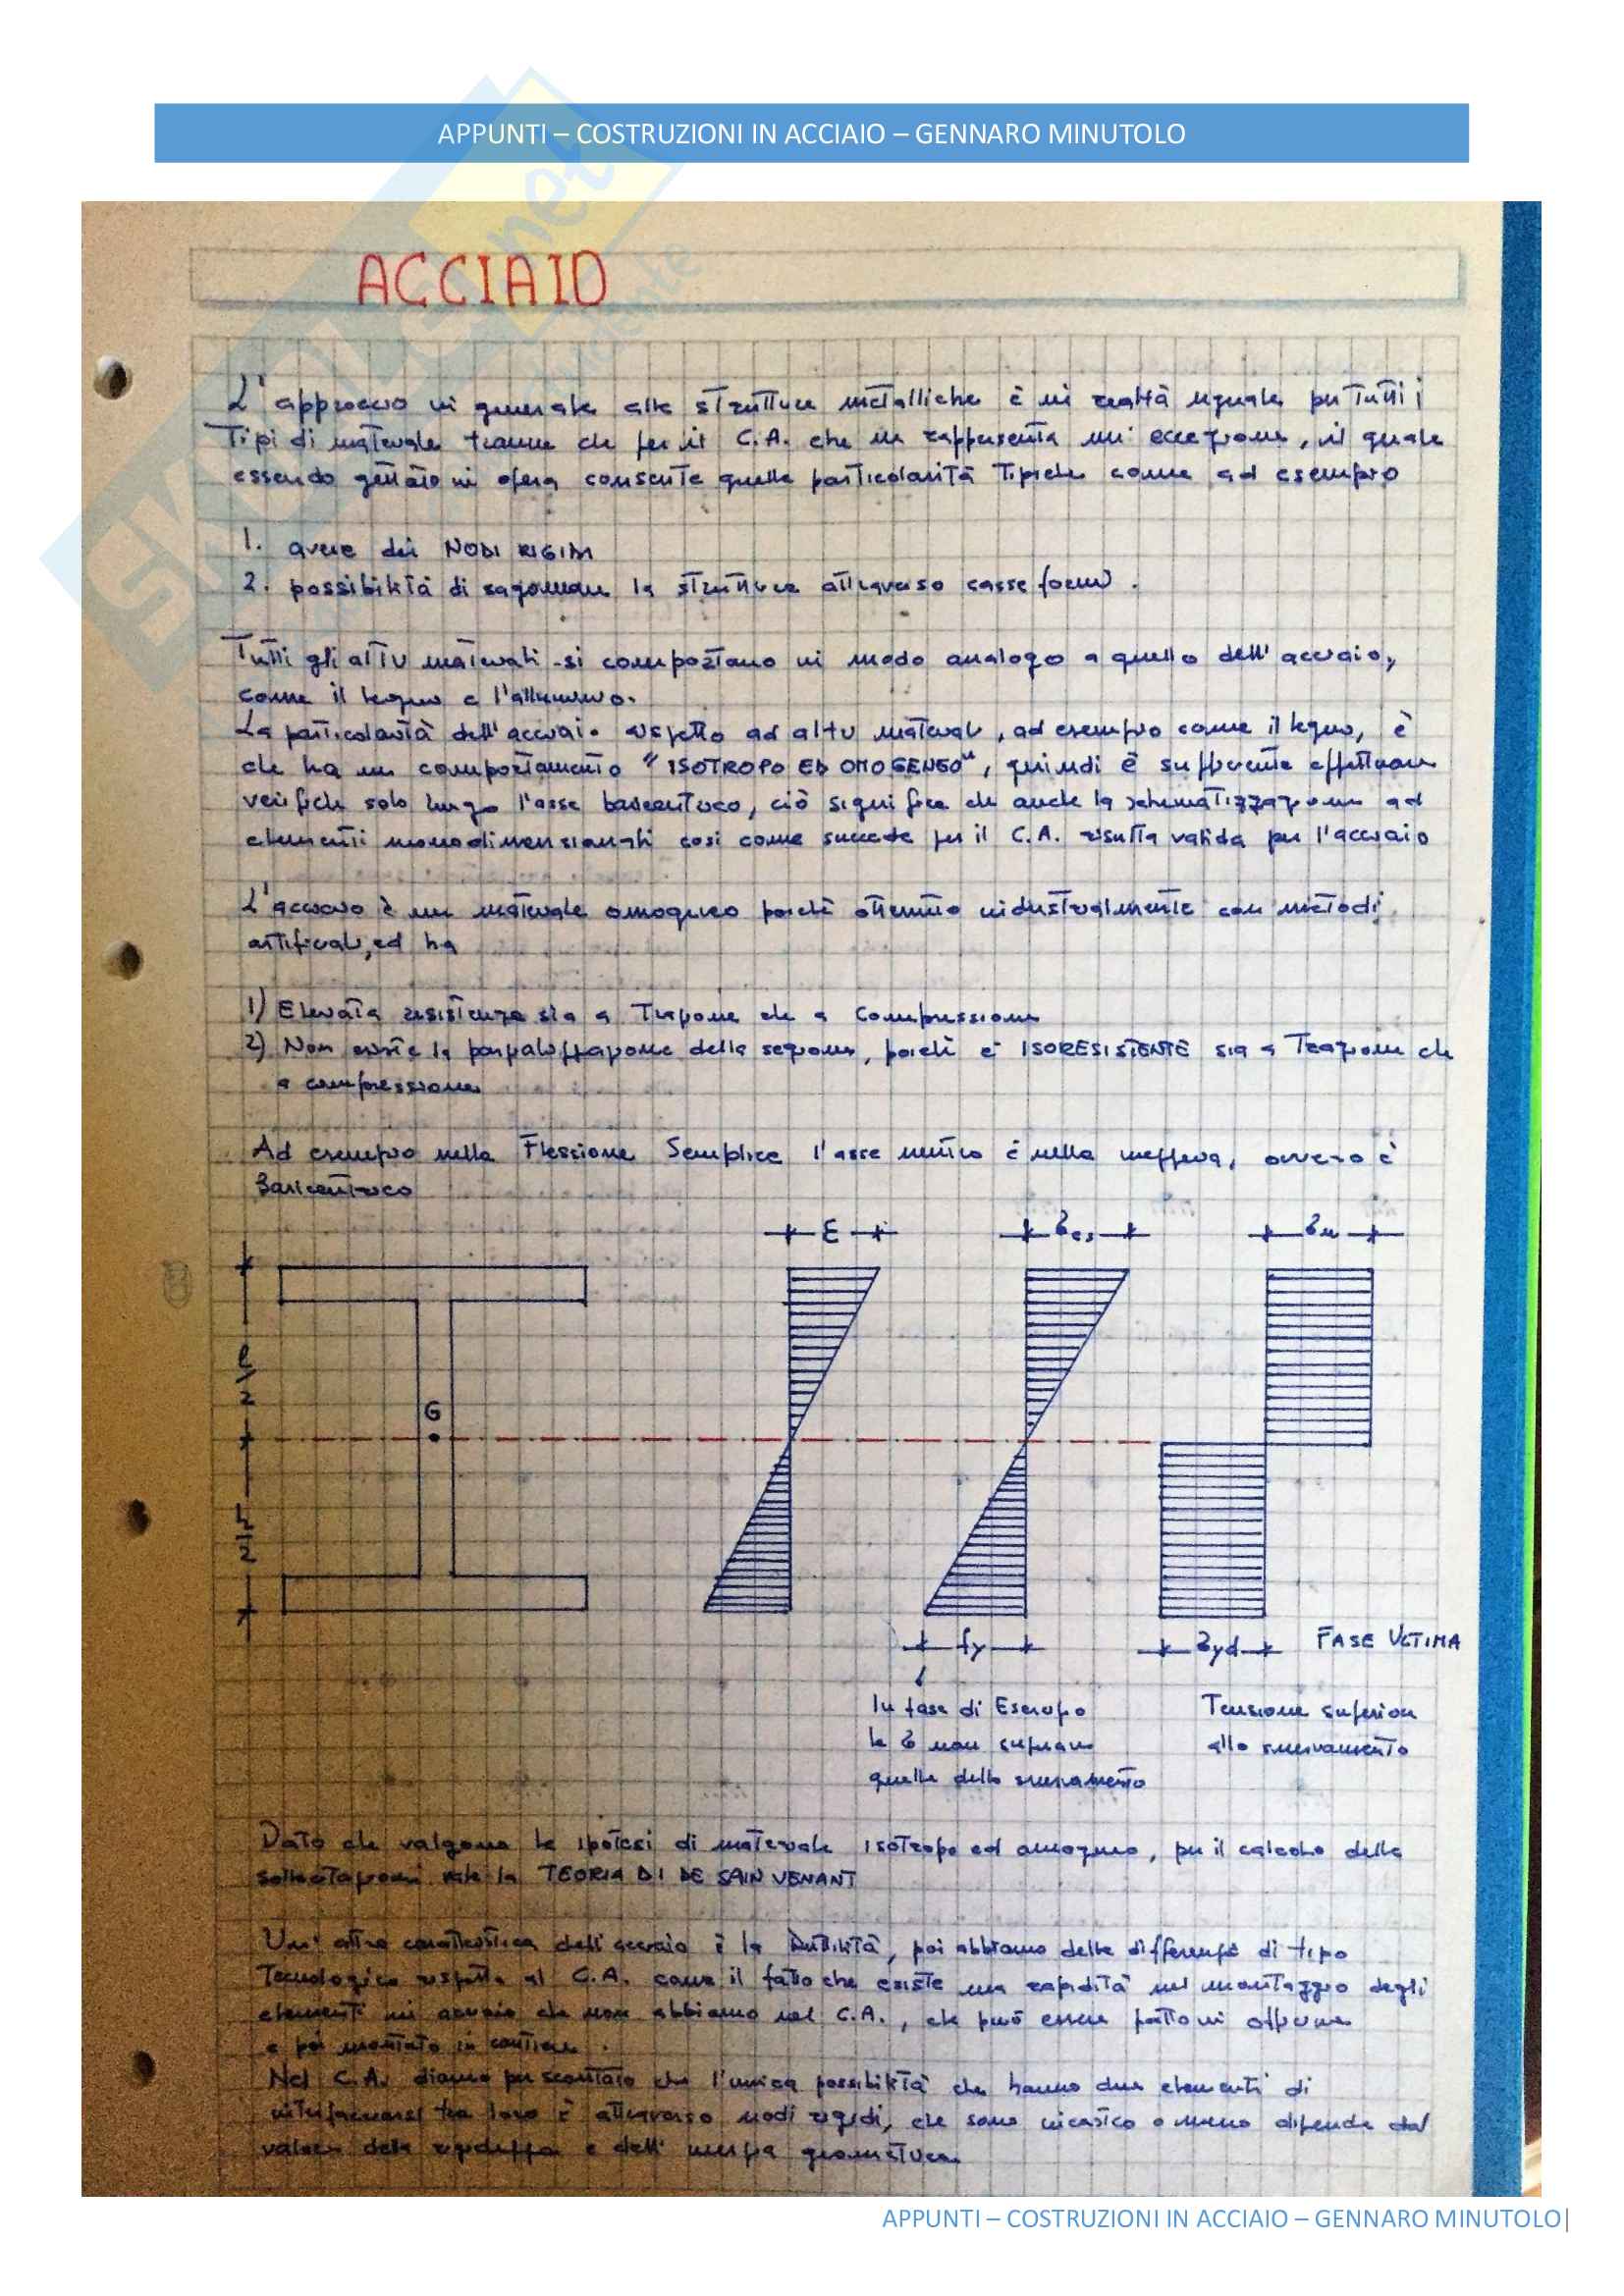 APPUNTI – COSTRUZIONI IN ACCIAIO – GENNARO MINUTOLO
SKUOLA.net
ACCIAIO
L'approccio in generale alle strutture metalliche è in realtà uguale per tutti i
tipi di materiale tranne che per il C.A. che ne rappresenta un' eccezione, il quale
essendo gettato in opera consente quelle particolarità tipiche come ad esempio
1. avere dei NODI RIGIDI
2. possibilità di sagomare la struttura attraverso casseformi.
Tutti gli altri materiali si comportano in modo analogo a quello dell' acciaio,
come il legno e l'alluminio.
La particolarità dell'acciaio rispetto ad altri materiali, ad esempio come il legno, è
che ha un comportamento "ISOTROPO ED OMOGENEO", quindi è sufficiente effettuare
verifiche solo lungo l'asse baricentrico, ciò significa che anche la schematizzazione ad
elementi monodimensionali così come succede per il C.A. risulta valida per l'acciaio
L'acciaio è un materiale omogeneo poichè ottenuto industrialmente con metodi
artificiali, ed ha
1) Elevata resistenza sia a Trazione che a Compressione
2) Non esiste la parzializzazione della sezione, poichè è ISORESISTENTE sia a Trazione che
a compressione
Ad esempio nella Flessione Semplice l'asse neutro è nella mezzeria, ovvero è
Baricentrico
ε
σes
σu
G
h/2
fy
σyd
FASE ULTIMA
In fase di Esercizio
le σ non superano
quelle dello snervamento
Tensione superiore
allo snervamento
Dato che valgono le ipotesi di materiale isotropo ed omogeneo, per il calcolo delle
sollecitazioni vale la TEORIA DI DE SAIN VENANT
Un' altra caratteristica dell'acciaio è la Duttilità, poi abbiamo delle differenze di tipo
Tecnologico rispetto al C.A. come il fatto che esiste una rapidità nel montaggio degli
elementi in acciaio che non abbiamo nel C.A., che può essere fatto in officina
e poi montato in cantiere.
Nel C.A. diamo per scontato che l'unica possibilità che hanno due elementi di
interfacciarsi tra loro è attraverso nodi rigidi, che sono incastro o meno dipende dal
valore della rigidezza e dell' inerzia geometrica.
APPUNTI – COSTRUZIONI IN ACCIAIO – GENNARO MINUTOLO|